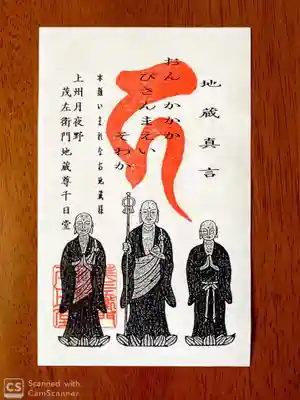 地蔵真言
おん かかか
びさんまえい
そわか
本願いまれなお地蔵様
上州月夜野
茂左衛門地蔵尊千日堂
CS Scanned with
CamScanner